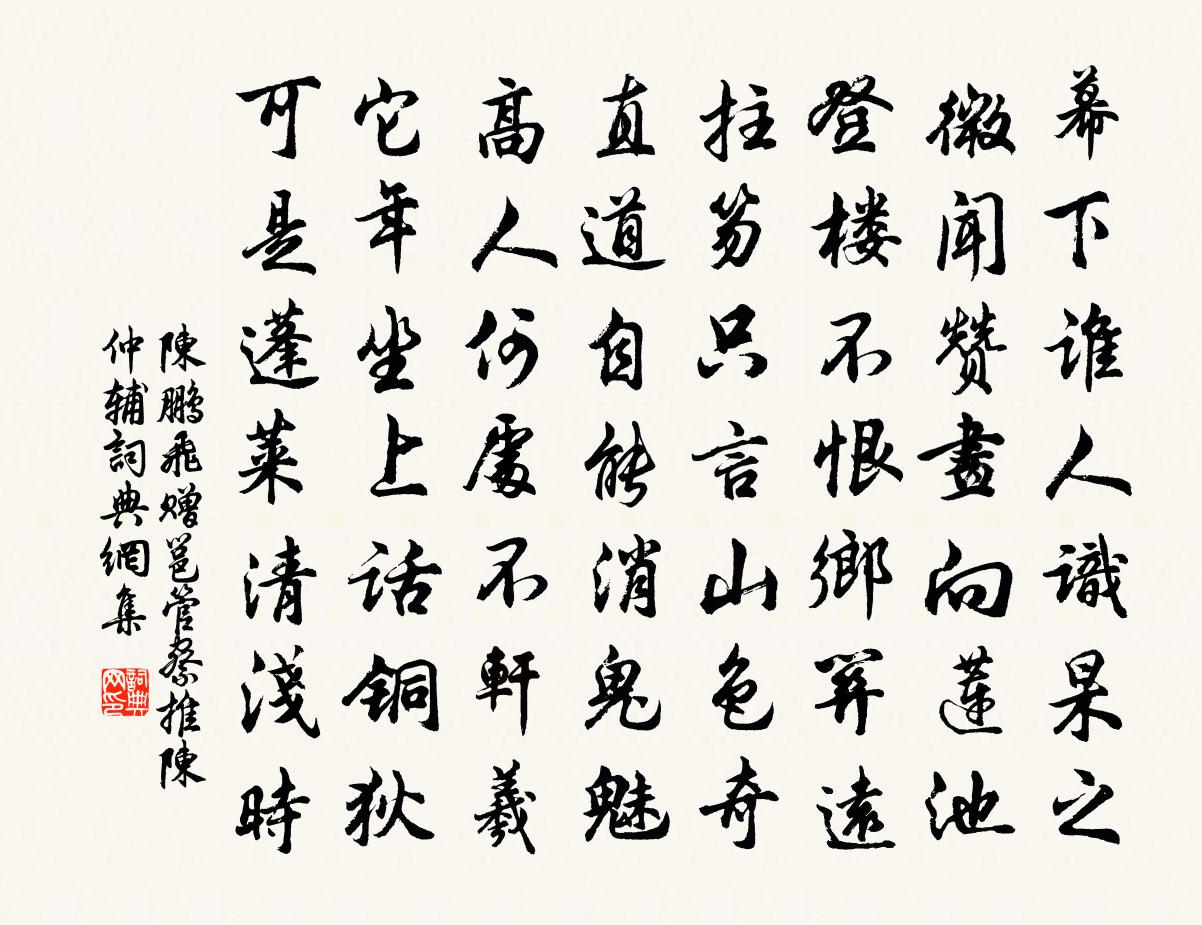 幕下谁人識杲之
微闻赞畫向蓮池
登楼不恨鄉關遠
拄笏只言山色奇
直道自能消鬼魅
高人何處不軒羲
它年坐上话铜狄
可是蓬莱清淺時
陳鵬飛赠邕管察推陳
仲辅詞典網集
詞典网印